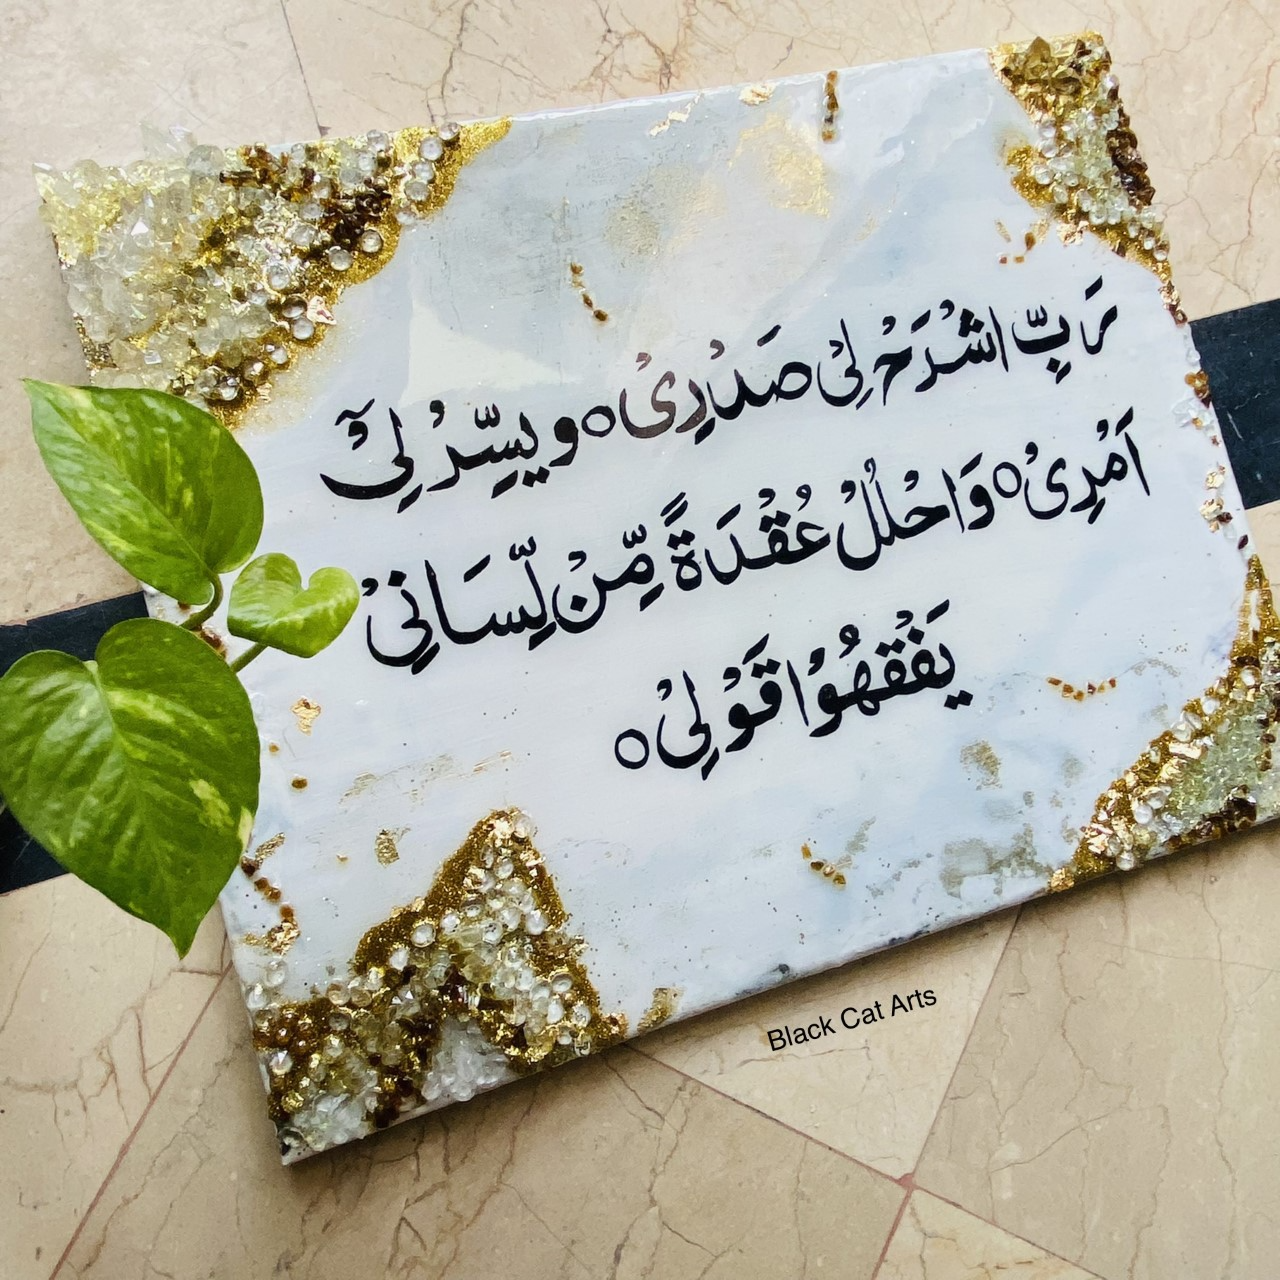 رَبِّ اشْرَحْ لِیْ صَدْرِیْ ○ ویسِّرْ لِیْۤ
اَمْرِیْ ○ وَاحْلُلْ عُقْدَةً مِّنْ لِّسَانِیْ
یَفْقَهُوْا قَوْلِیْ ○
Black Cat Arts